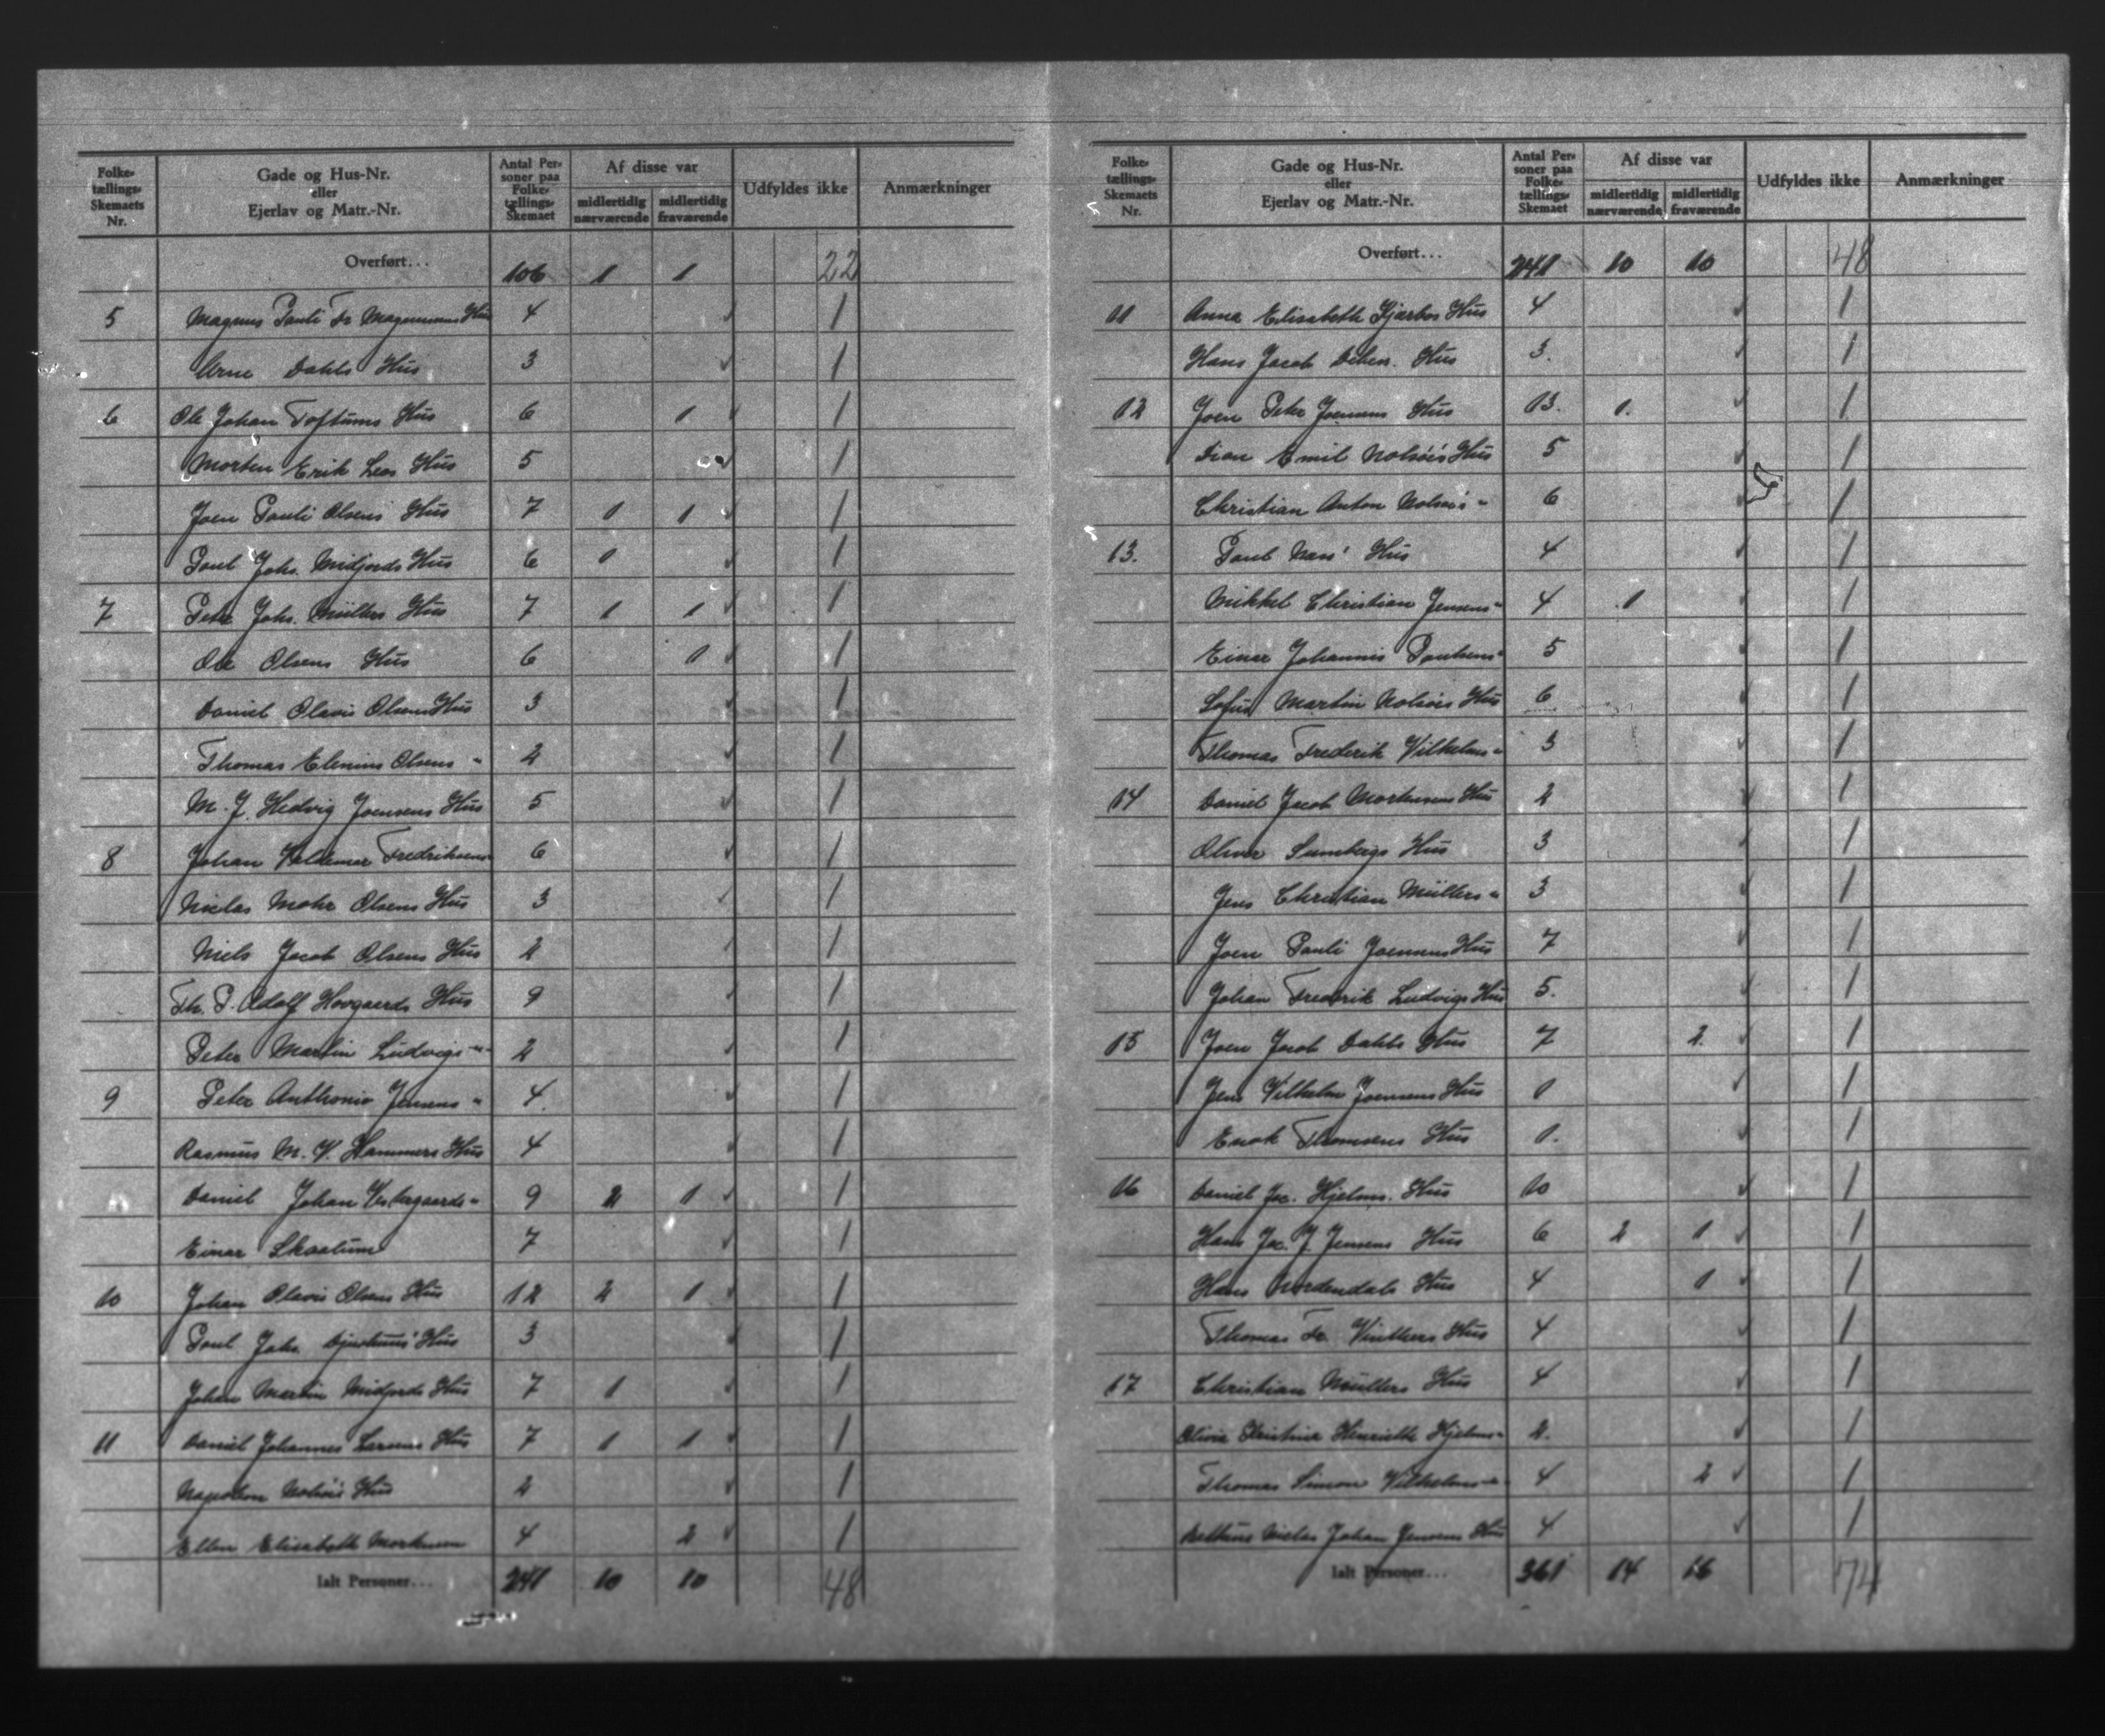 Folke-tællings-Skemaets Nr. | Gade og Hus-Nr. eller Ejerlav og Matr.-Nr. | Antal Per-soner paa Folke-tællings-Skemaet | Af disse var midlertidig nærværende | midlertidig fraværende | Udfyldes ikke | Anmærkninger
Overført... 106 1 1 22
5 Magnus Pauli Fr Magnussens Hus 4 1
Arne Dahls Hus 3 1
6 Ole Johan Toftums Hus 6 1 1
Morten Erik Leos Hus 5 1
Joen Pauli Olsens Hus 7 1 1 1
Poul Johs. Midjords Hus 6 1 1
7 Peter Johs. Müllers Hus 7 1 1 1
Ole Olsens Hus 6 1 1
Daniel Olavis Olsens Hus 3 1
Thomas Elenius Olsens " 2 1
M. J. Hedvig Joensens Hus 5 1
8 Johan Valdemar Fredriksens 6 1
Niclas Mohr Olsens Hus 3 1
Niels Jacob Olsens Hus 2 1
Th. P. Adolf Hovgaards Hus 9 1
Peter Martin Ludvigs " 2 1
9 Peter Anthonio Jensens " 4. 1
Rasmus M. V. Hammers Hus 4 1
Daniel Johan Vestergaards " 9 2 1 1
Einar Skaalum 7 1
10 Johan Olavis Olsens Hus 12 2 1 1
Poul Johs. Hus 3 1
Johan Martin Midjords Hus 7 1 1
11 Daniel Johannes Larsens Hus 7 1 1 1
Napoleon Nolsöis Hus 2 1
Ellen Elisabeth Mortensen 4 2 1
Ialt Personer... 241 10 10 48
Folke-tællings-Skemaets Nr. | Gade og Hus-Nr. eller Ejerlav og Matr.-Nr. | Antal Per-soner paa Folke-tællings-Skemaet | Af disse var midlertidig nærværende | midlertidig fraværende | Udfyldes ikke | Anmærkninger
Overført... 241 10 10 48
11 Anna Elisabeth Hus 4 1
Hans Jacob Hus 3. 1
12 Joen Peter Joensens Hus 13. 1. 1
Emil Nolsöis Hus 5 1
Christian Anton Nolsöis " 6 1
13. Poul Hus 4 1
Mikkel Christian Jensens " 4 1 1
Einar Johannis Poulsens " 5 1
Sofus Martin Nolsöis Hus 6 1
Thomas Frederik Vilhelms " 3 1
14 Daniel Jacob Mortensens Hus 2 1
Oliver Sumbergs Hus 3 1
Jens Christian Müllers " 3 1
Joen Pauli Joensens Hus 7 1
Johan Frederik Ludvigs Hus 5. 1
15 Joen Jacob Dahls Hus 7 2. 1
Jens Vilhelm Joensens Hus 1 1
Enok Thomsens Hus 1. 1
16 Daniel Jac. Hjelms. Hus 10 1
Hans Jac. J. Jensens Hus 6 2 1 1
Hans Nordendals Hus 4 1 1
Thomas Fr. Vinthers Hus 4 1
17 Christian Müllers Hus 4 1
Olivia Kristina Henriette Hjelms " 2. 1
Thomas Simon Vilhelms " 4 2 1
Niclas Johan Jensens Hus 4 1
Ialt Personer... 361 14 16 74